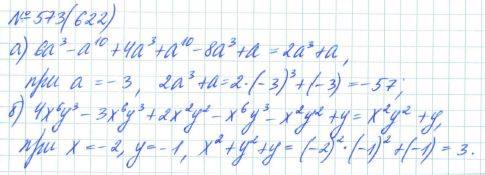 №573(622)
а) 6a³-a¹⁰+4a³+a¹⁰-8a³+a=2a³+a,
при a=-3, 2a³+a=2·(-3)³+(-3)=-57;
б) 4x⁶y³-3x⁶y³+2x²y²-x⁶y³-x²y²+y=x²y²+y,
при x=-2, y=-1, x²+y²+y=(-2)²·(-1)²+(-1)=3.